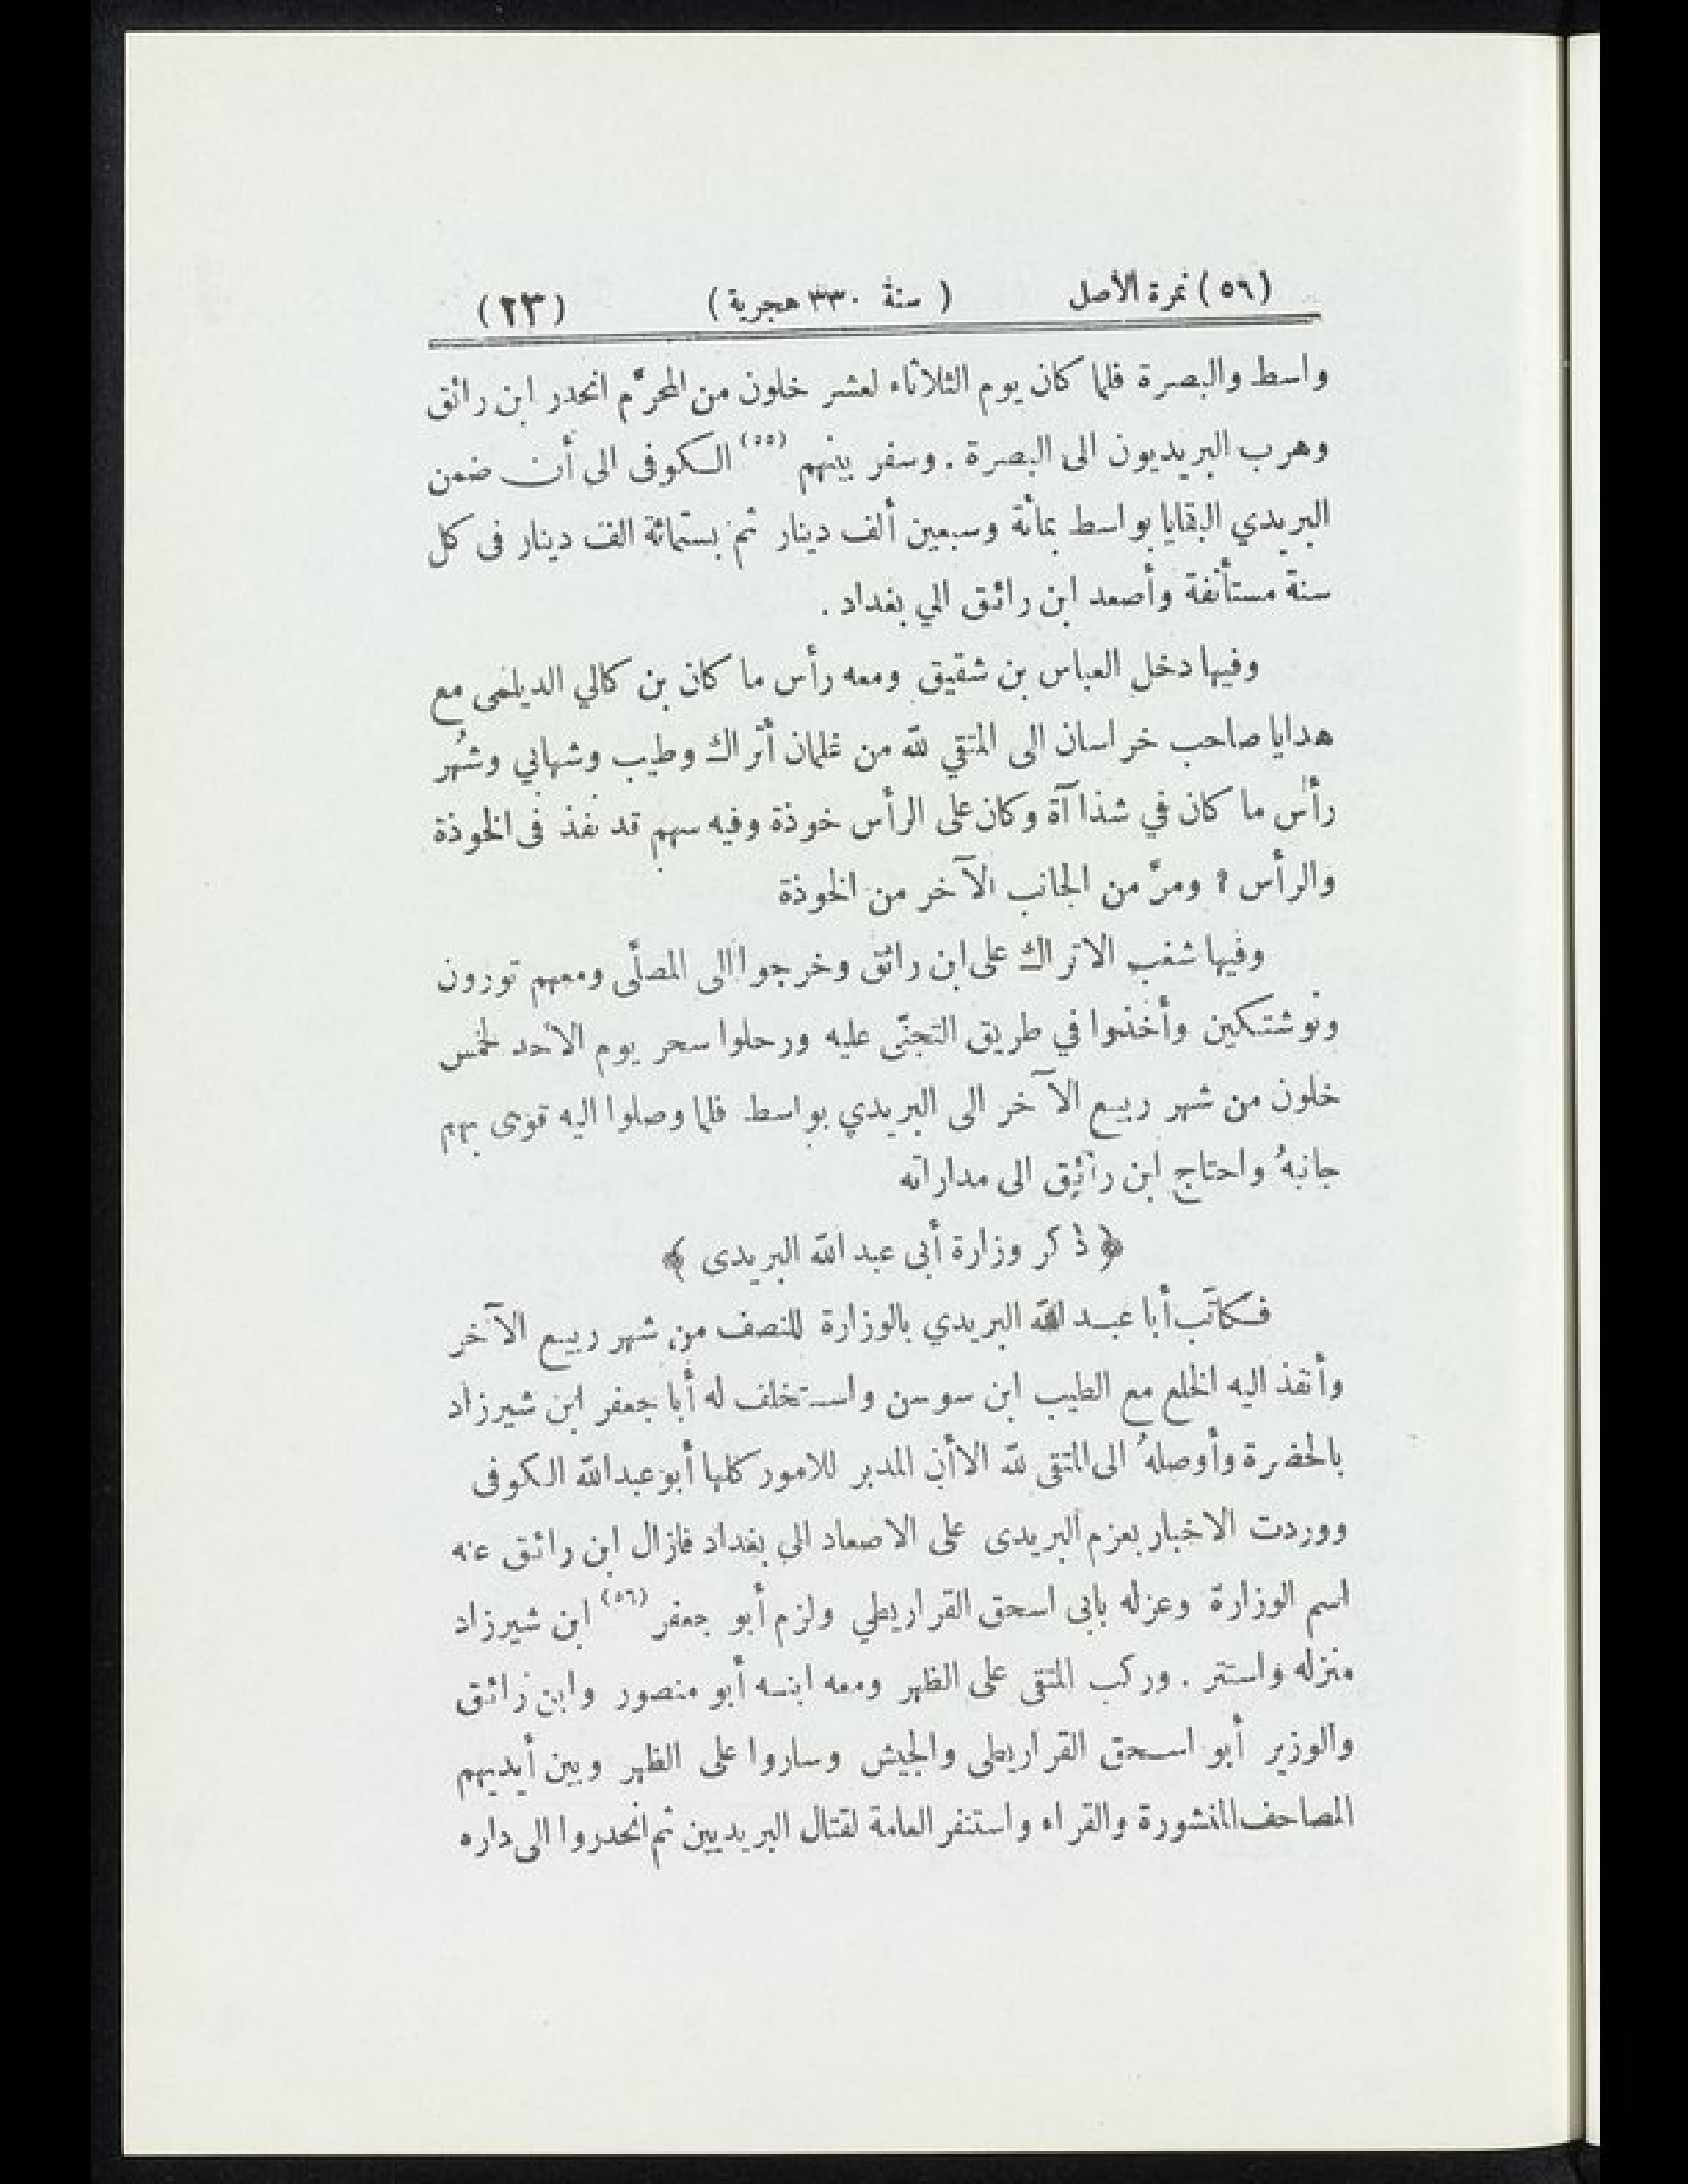 (٥٦) نمرة الأصل ( سنة ٣٣٠ هجرية ) (٢٣)
واسط والبصرة فلما كان يوم الثلاثاء لعشر خلون من المحرّم انحدر ابن رائق
وهرب البريديون الى البصرة . وسفر بينهم (٥٥) الكوفى الى أن ضمن
البريدي البقايا بواسط بمائة وسبعين ألف دينار ثم بستمائة الف دينار فى كل
سنة مستأنفة وأصعد ابن رائق الي بغداد .
وفيها دخل العباس بن شقيق ومعه رأس ما كان بن كالي الديلمى مع
هدايا صاحب خراسان الى المتقي لله من غلمان أتراك وطيب وشهابي وشُهر
رأس ما كان في شذاآة وكان على الرأس خوذة وفيه سهم قد نفذ فى الخوذة
والرأس ? ومرّ من الجانب الآخر من الخوذة
وفيها شغب الاتراك على ابن رائق وخرجوا الى المصلّى ومعهم توزون
ونوشتكين وأخذوا في طريق التجنّى عليه ورحلوا سحر يوم الاحد لخمس
خلون من شهر ربيع الآخر الى البريدي بواسط فلما وصلوا اليه قوى بهم
جانبهُ واحتاج ابن رائق الى مداراته
﴿ ذكر وزارة أبى عبد الله البريدى ﴾
فكاتَب أبا عبد الله البريدي بالوزارة للنصف من شهر ربيع الآخر
وأنفذ اليه الخلع مع الطيب ابن سوسن واستخلف له أبا جعفر ابن شيرزاد
بالحضرة وأوصلهُ الى المتقى لله الا أن المدبر للامور كلها أبو عبد الله الكوفى
ووردت الاخبار بعزم البريدى على الاصعاد الي بغداد فازال ابن رائق عنه
اسم الوزارة وعزله بابى اسحق القراريطي ولزم أبو جعفر (٥٦) ابن شيرزاد
منزله واستتر . وركب المتقى على الظهر ومعه ابنه أبو منصور وابن رائق
والوزير أبو اسحق القراريطى والجيش وساروا على الظهر وبين أيديهم
المصاحف المنشورة والقراء واستنفر العامة لقتال البريديين ثم انحدروا الى داره